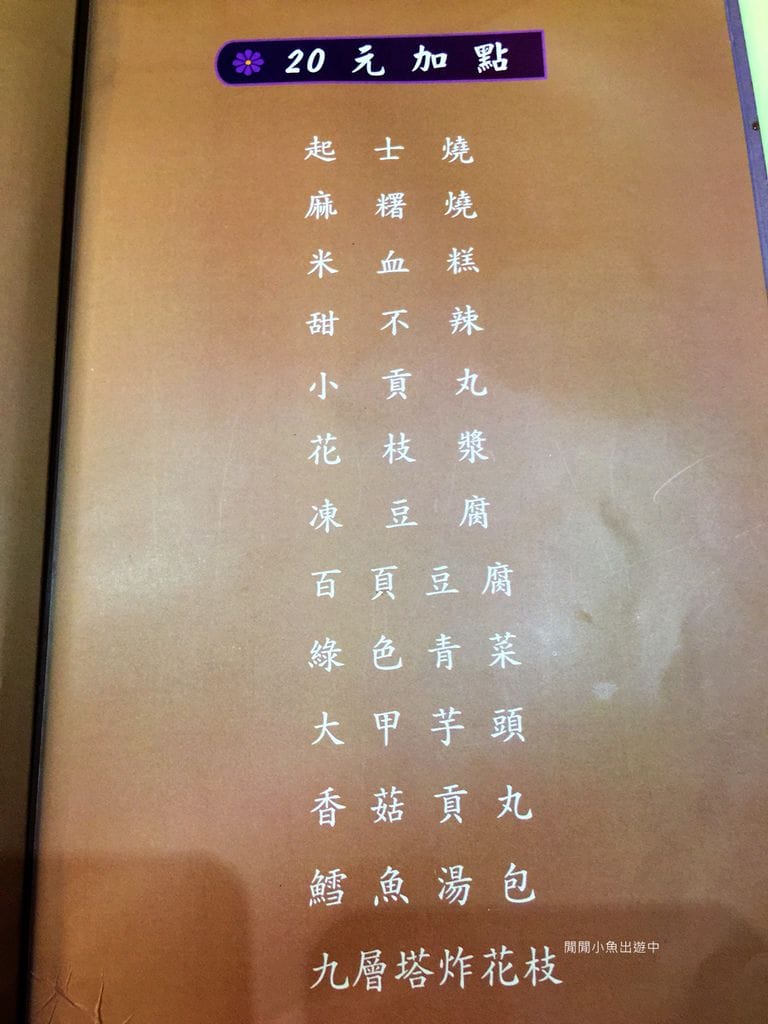 20元加點
起士燒
麻糬燒
米血糕
甜不辣
小貢丸
花枝漿
凍豆腐
百頁豆腐
綠色青菜
大甲芋頭
香菇貢丸
鱈魚湯包
九層塔炸花枝
閒閒小魚出遊中